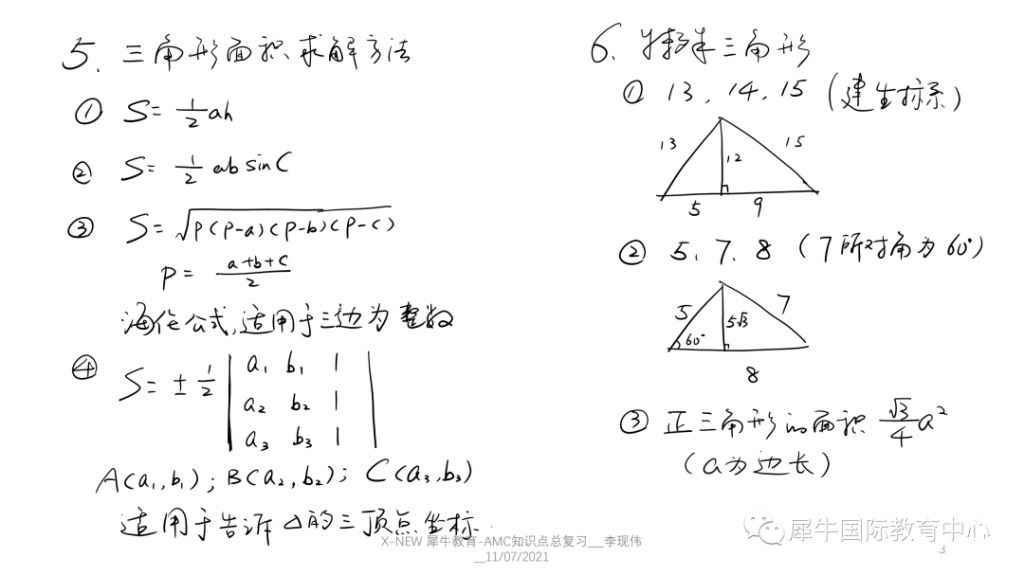 5. 三角形面积求解方法
① S= 1/2 ah
② S= 1/2 ab sinC
③ S=√P(P-a)(P-b)(P-c)
P= a+b+c/2
海伦公式,适用于三边为整数
④ S= ± 1/2 | a₁ b₁ 1 |
| a₂ b₂ 1 |
| a₃ b₃ 1 |
A(a₁,b₁); B(a₂,b₂); C(a₃,b₃)
适用于告诉△的三顶点坐标.
6. 特殊三角形
① 13, 14, 15 (建坐标系)
13 12 15
5 9
② 5, 7, 8 (7所对角为60°)
5 5√3 7
60°
8
③ 正三角形的面积 √3/4 a²
(a为边长)
X-NEW 犀牛教育-AMC知识点总复习__李现伟
__11/07/2021
犀牛国际教育中心
3